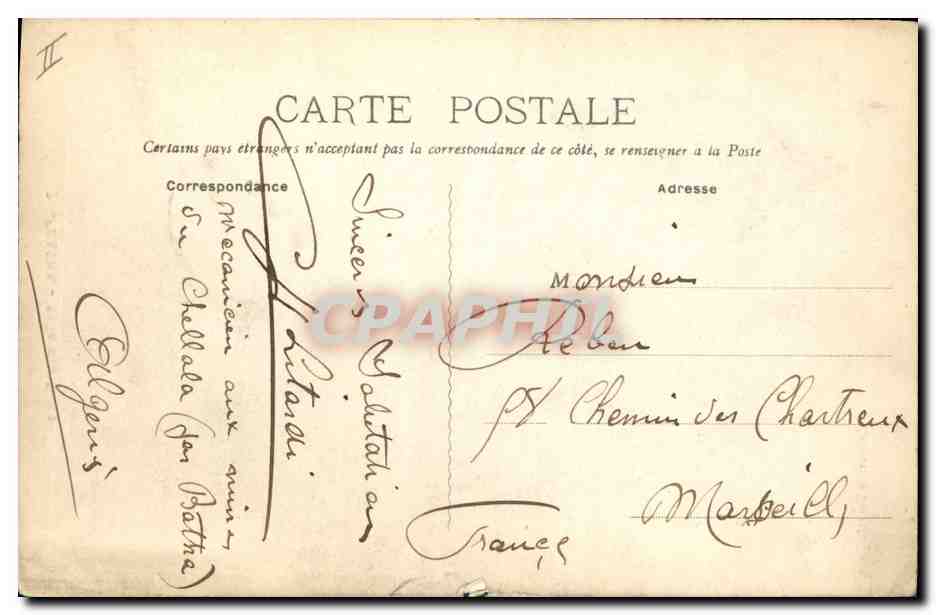 II
CARTE POSTALE
Certains pays etrangers n'acceptent pas la correspondance de ce côté, se renseigner a la Poste
Correspondance
Adresse
Sincères Salutations
Litardi
mecanicien aux mines
du Chellala (par Batna)
Algerie
Monsieur
Rebou
58 Chemin des Chartreux
Marseille
France
CPAPHIL